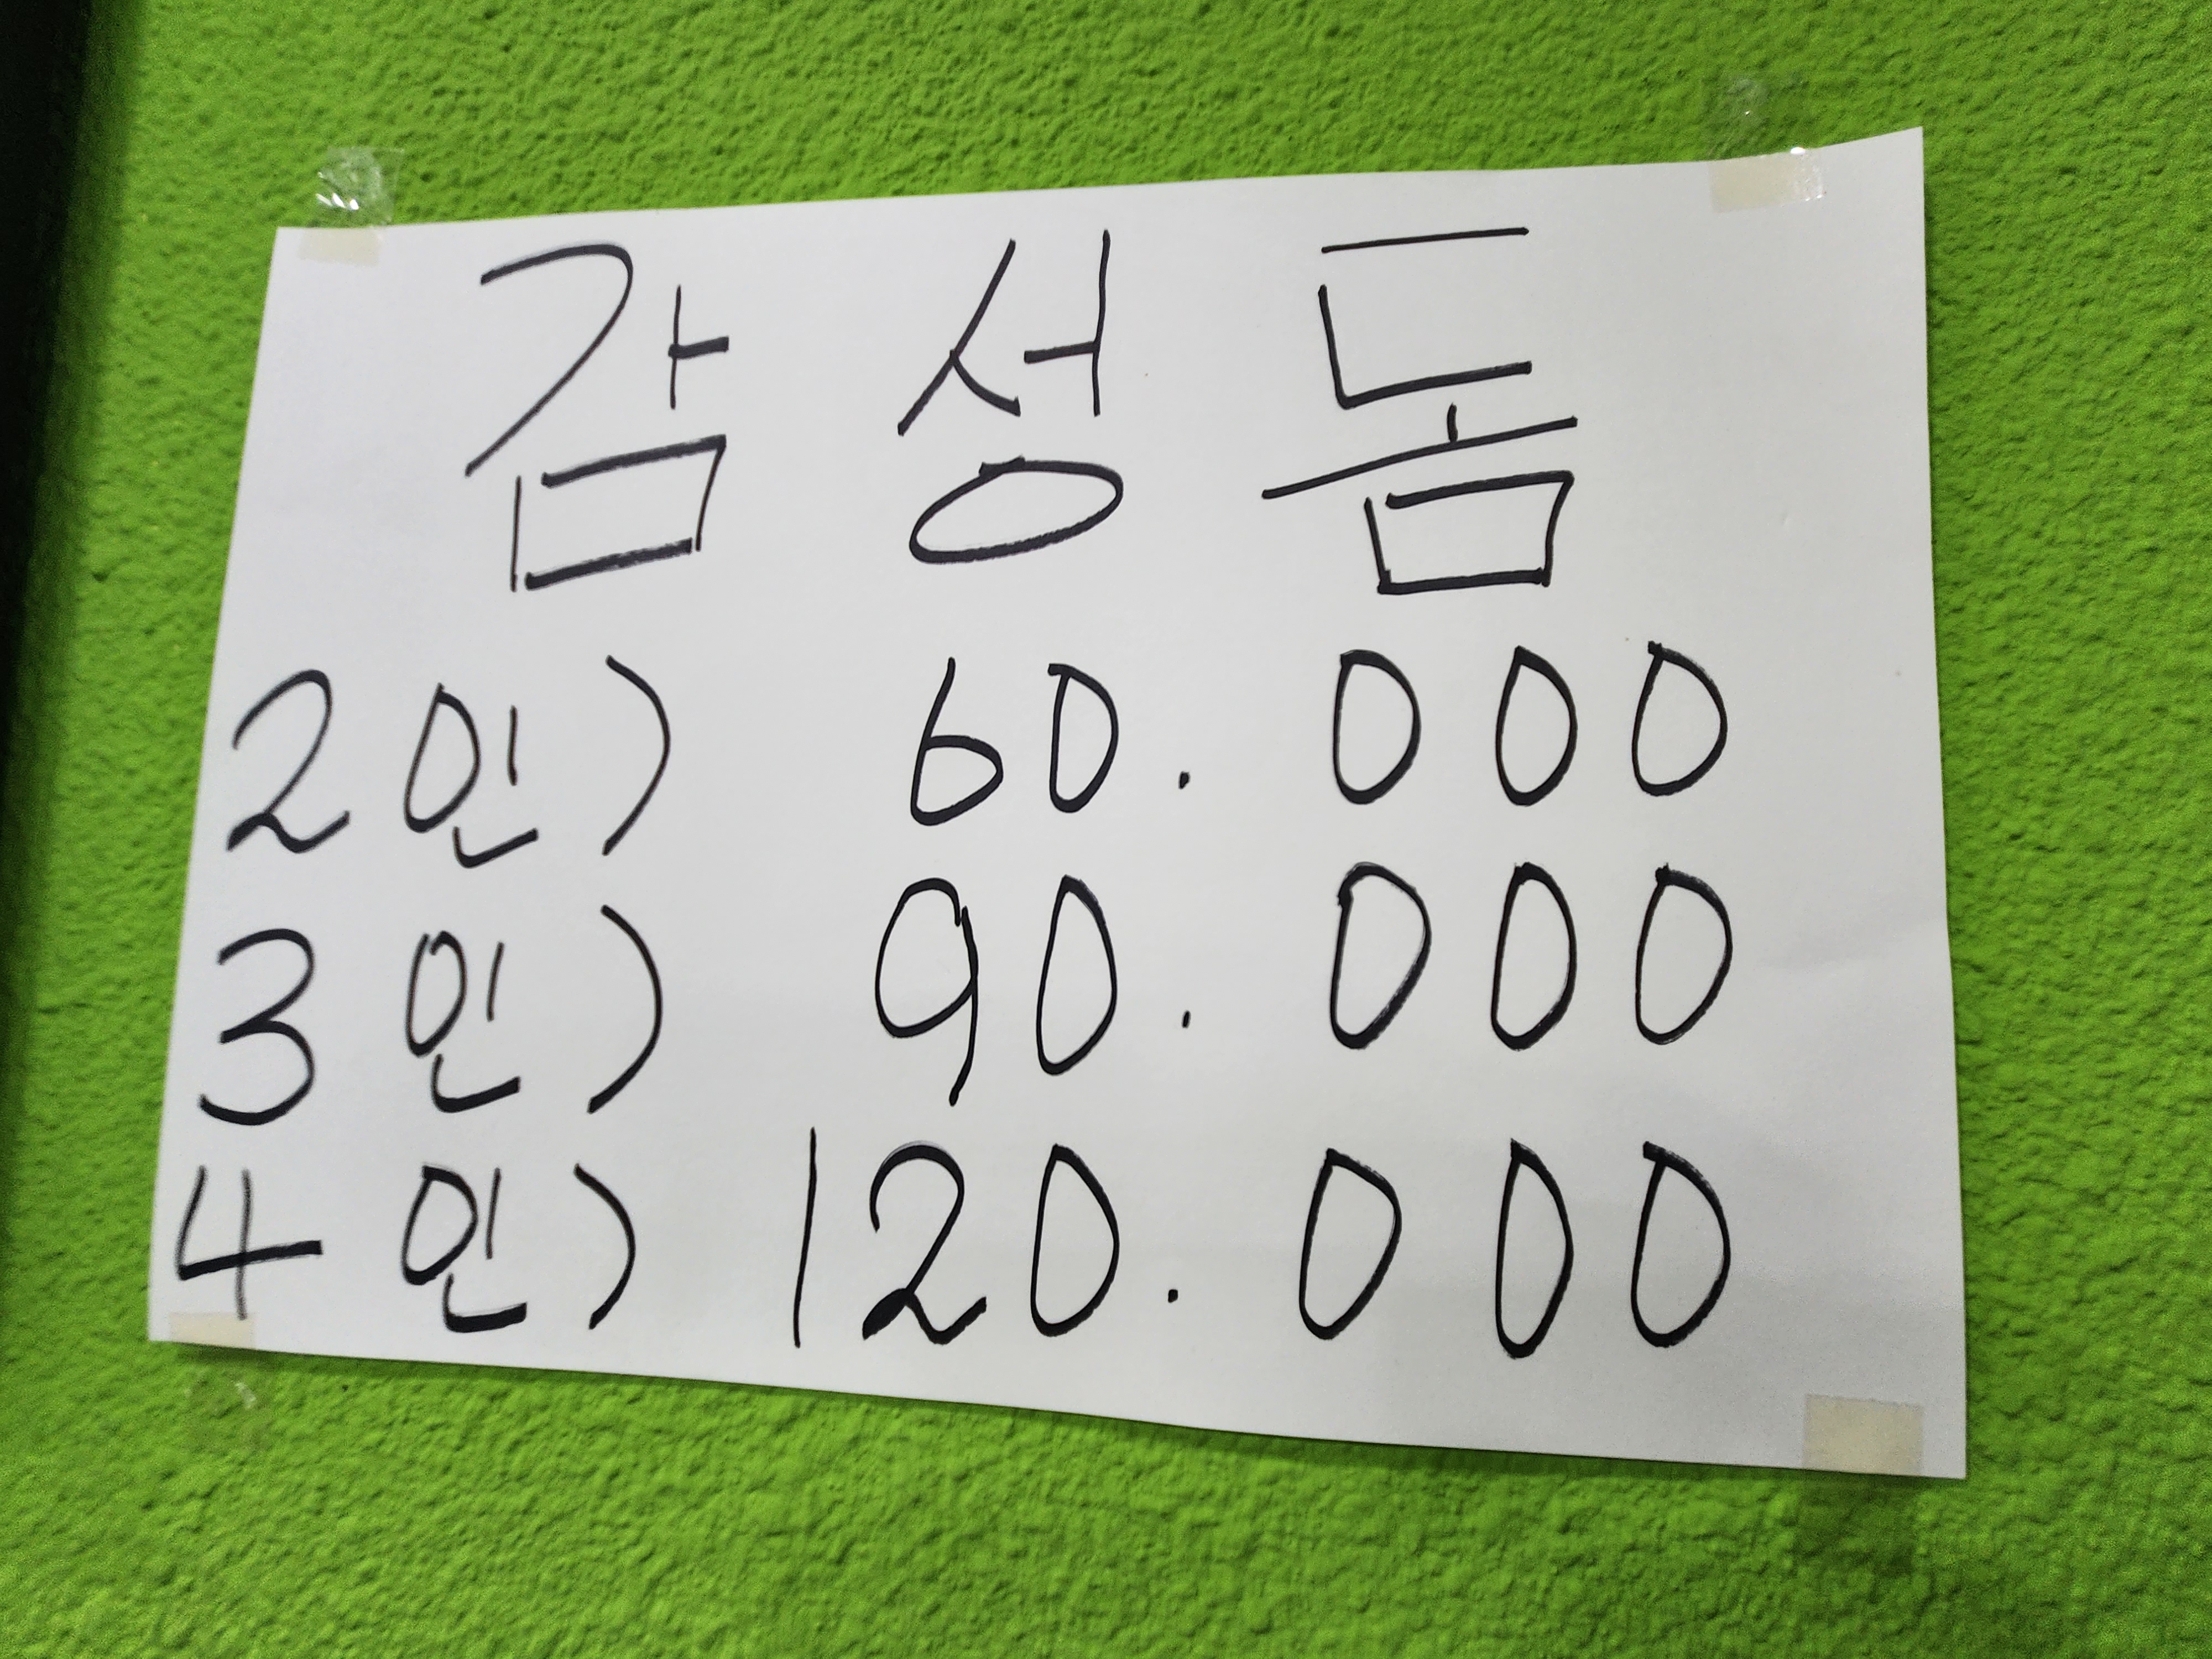 감성돔
2인) 60.000
3인) 90.000
4인) 120.000